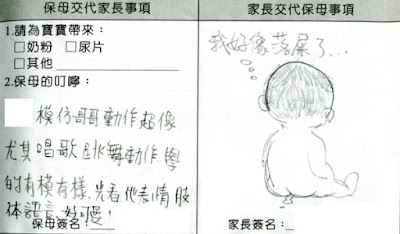 保母交代家長事項
1.請為寶寶帶來：
□奶粉 □尿片
□其他
2.保母的叮嚀：
模仿哥哥動作超像
尤其唱歌跳舞動作.學
的有模有樣.光看他表情肢
体語言,好可愛!
保母簽名：
家長交代保母事項
我好像落屎了...
家長簽名：